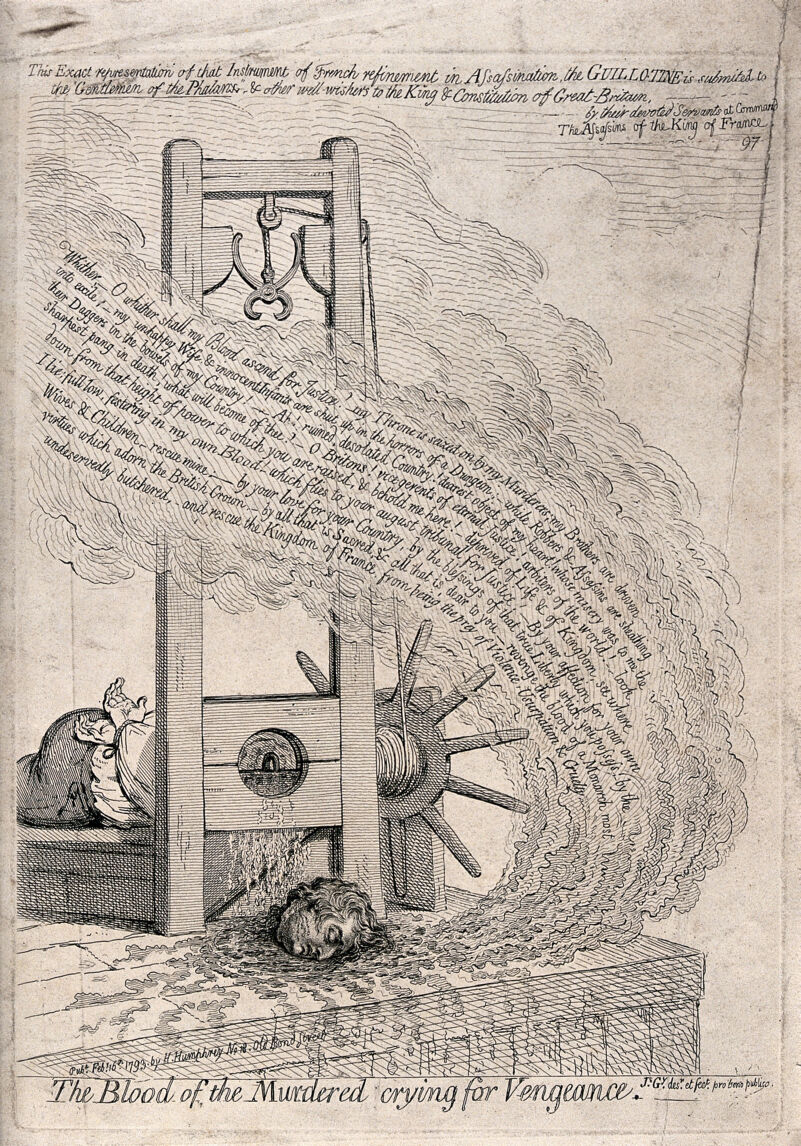 This Exact representation of that Instrument of French refinement in Aſsaſsination, the GUILLOTINE is submited to
the Gentlemen of the Phalanx, & other well-wishers to the King & Constitution of Great-Britain,
by their devoted Servants at Command
The Aſsaſsins of the King of France
97
Whither,- O whither shall my Blood ascend for Justice?- my Throne is seized on, by my Murderers; my Brothers are driven
into exile;- my unhappy Wife & innocent Infants are shut up in the horrors of a Dungeon;- while Robbers & Aſsaſsins are sheathing
their Daggers in the bowels of my Country!- Ah! ruined, desolated Country! dearest object of my heart! whose misery was to me the
sharpest pang in death! what will become of thee?- O Britons! vicegerents of eternal Justice! arbiters of the world!- look
down from that height of power to which you are raised, & behold me here!- deprived of Life & of Kingdom, see where
I lie; full low, festering in my own Blood! which flies to your august tribunal for Justice!- By your affection for your own
Wives & Children- rescue mine:- by your love for your Country, & by the bleſsings of that true Liberty which you poſseſs- by the
virtues which adorn the British Crown- by all that is Sacred, & all that is dear to you- revenge the blood of a Monarch most
undeservedly butchered,- and rescue the Kingdom of France, from being the prey of Violence, Usurpation & Cruelty
Pubd. Feby. 16th. 1793. by H. Humphrey No. 18. Old Bond Street
The Blood of the Murdered crying for Vengeance.
Js. Gy. desn. et fect. pro bono publico.